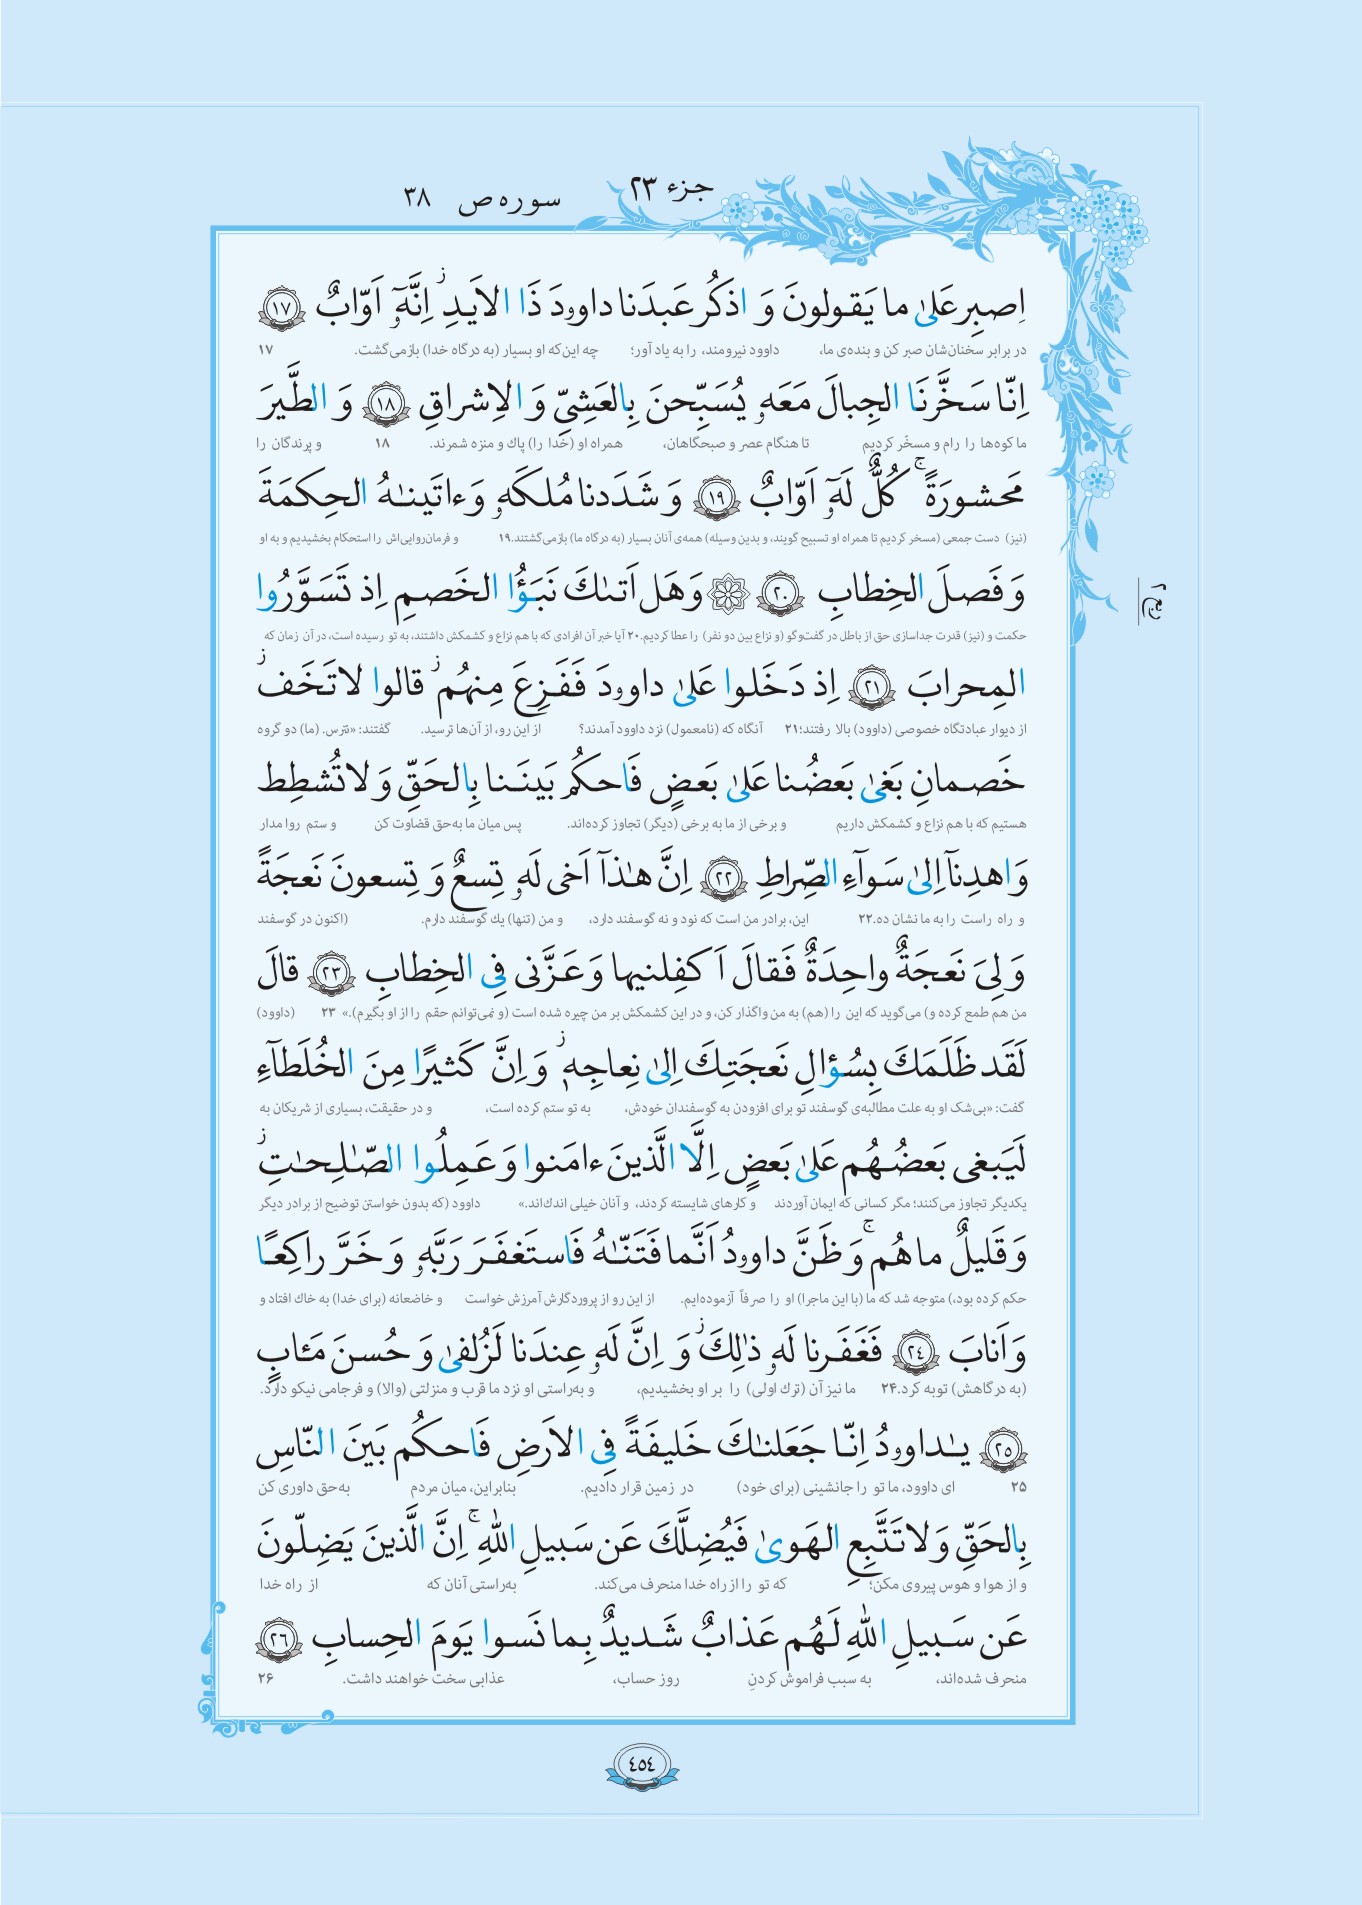 جزء ۲۳
سوره ص ۳۸
اِصبِر عَلىٰ ما يَقولونَ وَ اذكُر عَبدَنا داوودَ ذَا الاَيدِ ز اِنَّهٗٓ اَوّابٌ ﴿١٧﴾
در برابر سخنان‌شان صبر کن و بنده‌ی ما، داوود نیرومند، را به یاد آور؛ چه این‌که او بسیار (به درگاه خدا) بازمی‌گشت. ۱۷
اِنّا سَخَّرنَا الجِبالَ مَعَهٗ يُسَبِّحنَ بِالعَشِيِّ وَ الاِشراقِ ﴿١٨﴾ وَ الطَّيرَ
ما کوه‌ها را رام و مسخّر کردیم تا هنگام عصر و صبحگاهان، همراه او (خدا را) پاك و منزه شمرند. ۱۸ و پرندگان را
مَحشورَةً ج كُلٌّ لَهٗٓ اَوّابٌ ﴿١٩﴾ وَ شَدَدنا مُلكَهٗ وَ ءاتَينـٰهُ الحِكمَةَ
(نیز) دست جمعی (مسخر کردیم تا همراه او تسبیح گویند، و بدین وسیله) همه‌ی آنان بسیار (به درگاه ما) بازمی‌گشتند.۱۹ و فرمان‌روایی‌اش را استحکام بخشیدیم و به او
وَ فَصلَ الخِطابِ ﴿٢٠﴾ ۞ وَ هَل اَتىٰكَ نَبَؤُا الخَصمِ اِذ تَسَوَّرُوا
ربع ۲
حکمت و (نیز) قدرت جداسازی حق از باطل در گفت‌وگو (و نزاع بین دو نفر) را عطا کردیم.۲۰ آیا خبر آن افرادی که با هم نزاع و کشمکش داشتند، به تو رسیده است، در آن زمان که
المِحرابَ ﴿٢١﴾ اِذ دَخَلوا عَلىٰ داوودَ فَفَزِعَ مِنهُم ز قالوا لا تَخَف ز
از دیوار عبادتگاه خصوصی (داوود) بالا رفتند؛۲۱ آنگاه که (نامعمول) نزد داوود آمدند؟ از این رو، از آن‌ها ترسید. گفتند: «نترس. (ما) دو گروه
خَصمانِ بَغىٰ بَعضُنا عَلىٰ بَعضٍ فَاحكُم بَينَنا بِالحَقِّ وَ لا تُشطِط
هستیم که با هم نزاع و کشمکش داریم و برخی از ما به برخی (دیگر) تجاوز کرده‌اند. پس میان ما به‌حق قضاوت کن و ستم روا مدار
وَ اهدِنآ اِلىٰ سَوآءِ الصِّراطِ ﴿٢٢﴾ اِنَّ هـٰذآ اَخى لَهٗ تِسعٌ وَ تِسعونَ نَعجَةً
و راه راست را به ما نشان ده.۲۲ این، برادر من است که نود و نه گوسفند دارد، و من (تنها) یك گوسفند دارم. (اکنون در گوسفند
وَ لِىَ نَعجَةٌ واحِدَةٌ فَقالَ اَكفِلنيها وَ عَزَّنى فِى الخِطابِ ﴿٢٣﴾ قالَ
من هم طمع کرده و) می‌گوید که این را (هم) به من واگذار کن، و در این کشمکش بر من چیره شده است (و نمی‌توانم حقم را از او بگیرم).» ۲۳ (داوود)
لَقَد ظَلَمَكَ بِسُؤالِ نَعجَتِكَ اِلىٰ نِعاجِهٖ ز وَ اِنَّ كَثيرًا مِنَ الخُلَطآءِ
گفت: «بی‌شک او به علت مطالبه‌ی گوسفند تو برای افزودن به گوسفندان خودش، به تو ستم کرده است، و در حقیقت، بسیاری از شریکان به
لَيَبغى بَعضُهُم عَلىٰ بَعضٍ اِلَّا الَّذينَ ءامَنوا وَ عَمِلُوا الصّـٰلِحـٰتِ ز
یکدیگر تجاوز می‌کنند؛ مگر کسانی که ایمان آوردند و کارهای شایسته کردند، و آنان خیلی اندك‌اند.» داوود (که بدون خواستن توضیح از برادر دیگر
وَ قَليلٌ ما هُم ج وَ ظَنَّ داوودُ اَنَّما فَتَنّـٰهُ فَاستَغفَرَ رَبَّهٗ وَ خَرَّ راكِعًا
حکم کرده بود،) متوجه شد که ما (با این ماجرا) او را صرفاً آزموده‌ایم. از این رو از پروردگارش آمرزش خواست و خاضعانه (برای خدا) به خاك افتاد و
وَ اَنابَ ﴿٢٤﴾ فَغَفَرنا لَهٗ ذٰلِكَ ز وَ اِنَّ لَهٗ عِندَنا لَزُلفىٰ وَ حُسنَ مَـٔابٍ
(به درگاهش) توبه کرد.۲۴ ما نیز آن (ترك اولی) را بر او بخشیدیم، و به‌راستی او نزد ما قرب و منزلتی (والا) و فرجامی نیکو دارد.
﴿٢٥﴾ يـٰداوودُ اِنّا جَعَلنـٰكَ خَليفَةً فِى الاَرضِ فَاحكُم بَينَ النّاسِ
۲۵ ای داوود، ما تو را جانشینی (برای خود) در زمین قرار دادیم. بنابراین، میان مردم به‌حق داوری کن
بِالحَقِّ وَ لا تَتَّبِعِ الهَوىٰ فَيُضِلَّكَ عَن سَبيلِ اللّٰهِ ج اِنَّ الَّذينَ يَضِلّونَ
و از هوا و هوس پیروی مکن؛ که تو را از راه خدا منحرف می‌کند. به‌راستی آنان که از راه خدا
عَن سَبيلِ اللّٰهِ لَهُم عَذابٌ شَديدٌ بِما نَسوا يَومَ الحِسابِ ﴿٢٦﴾
منحرف شده‌اند، به سبب فراموش کردنِ روز حساب، عذابی سخت خواهند داشت. ۲۶
٤٥٤